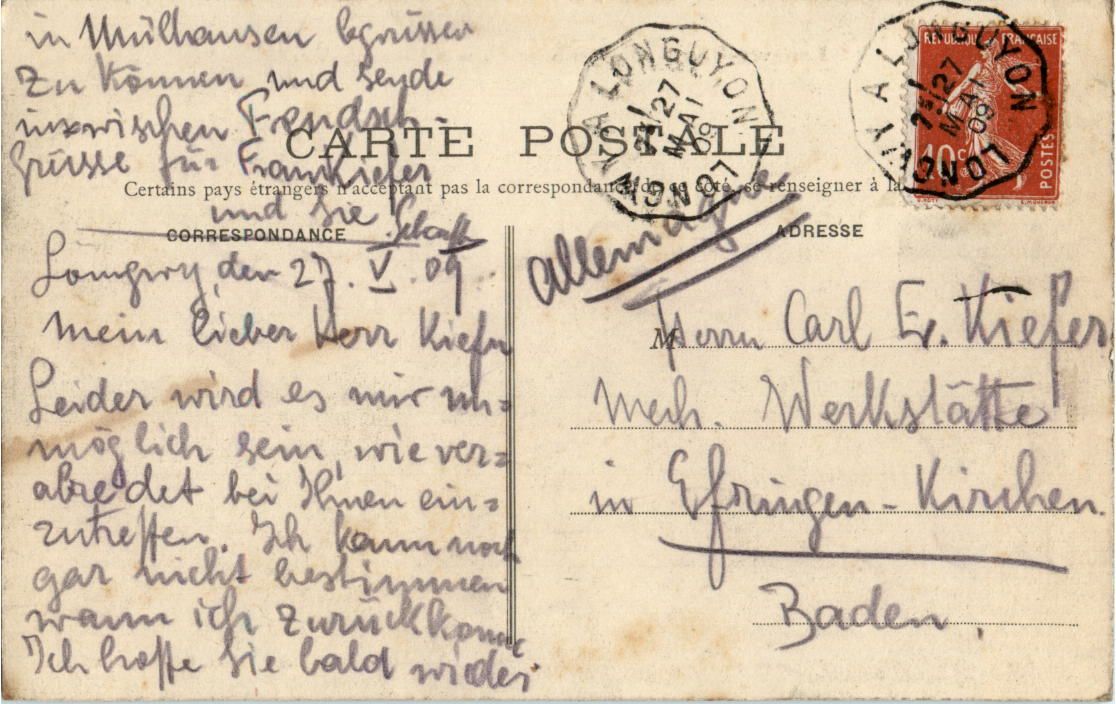 CARTE POSTALE
Certains pays étrangers n'acceptent pas la correspondance de ce côté, se renseigner à la
CORRESPONDANCE
Longwy, den 27. V. 09
Mein lieber Herr Kiefer
Leider wird es mir un=
möglich sein, wie ver=
abredet bei Ihnen ein=
zutreffen. Ich kann noch
gar nicht bestimmen
wann ich zurückkomme
Ich hoffe Sie bald wieder
in Mülhausen begrüssen
zu können und sende
inzwischen
Grüsse für Frau Kiefer
und Sie
ADRESSE
Allemagne
M Herrn Carl Ev. Kiefer
mech. Werkstätte
in Efringen-Kirchen
Baden.
LONGWY A LONGUYON
27
MAI
09
LONGWY A LONGUYON
27
MAI
09
REPUBLIQUE FRANÇAISE
10 c
POSTES